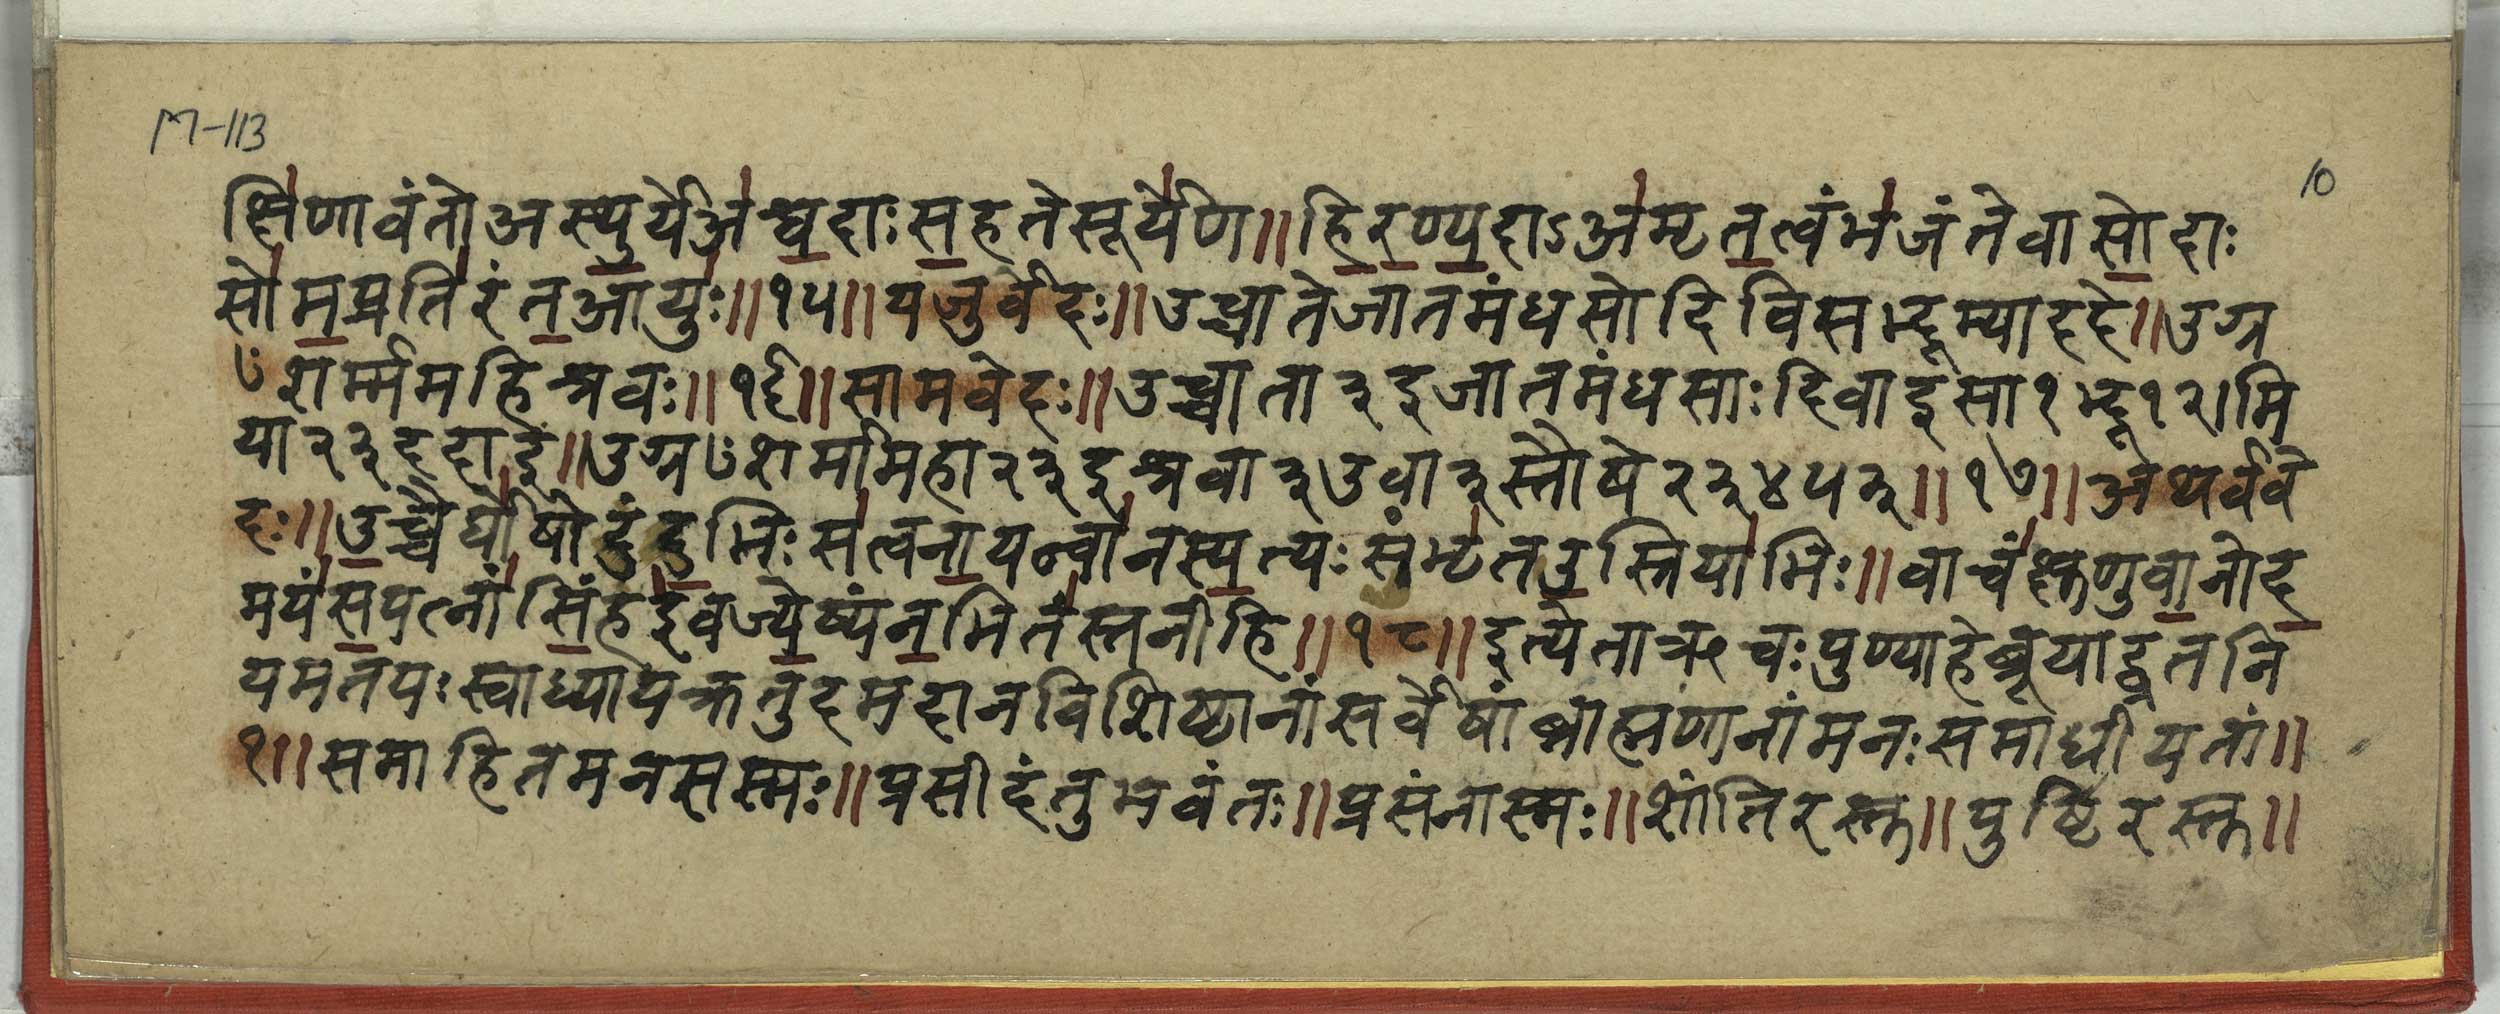 M-113
10
क्षिणावंतो अस्थुर्ये अश्वदाः सहते सूर्येण॥ हिरण्यदाऽ अमृतत्वं भजंते वासोदाः
सोमप्रतिरंत आयुः॥१५॥ यजुर्वेदः॥ उच्चातेजातमंधसो दिविसद्भूम्याददे॥ उग्र
ꣳशर्म्ममहिश्रवः॥१६॥ सामवेदः॥ उच्चाता३इजातमंधसाः दिवाइसा१द्भू१२।मि
या२३ददाइ॥ उग्रꣳशर्मामहा२३इश्रवा३उवा३स्तौषे२३४५३॥१७॥ अथर्ववे
दः॥ उच्चैर्घोषो दुंदुभिः सत्वनायन्वानस्पत्यः संभृत उस्रियाभिः॥ वाचंक्षुणुवानोद
मयंसपत्नांसिंह इवज्येष्यंनभितंस्तनीहि॥१८॥ इत्येताऋचः पुण्याहेब्रूयाद्व्रतनि
यमतपः स्वाध्यायक्रतुदमदानविशिष्टानांसर्वेषांब्राह्मणानांमनः समाधीयतां॥
१॥ समाहितमनसस्मः॥ प्रसीदंतुभवंतः॥ प्रसंनास्मः॥ शांतिरस्तु॥ पुष्टिरस्तु॥